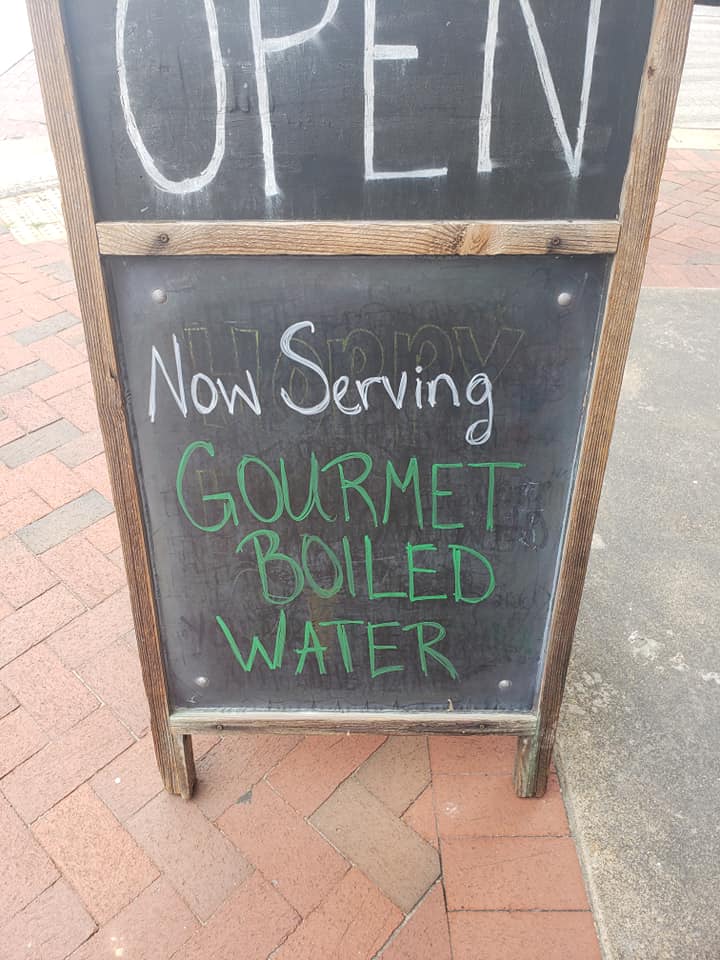 OPEN
Now Serving
GOURMET
BOILED
WATER